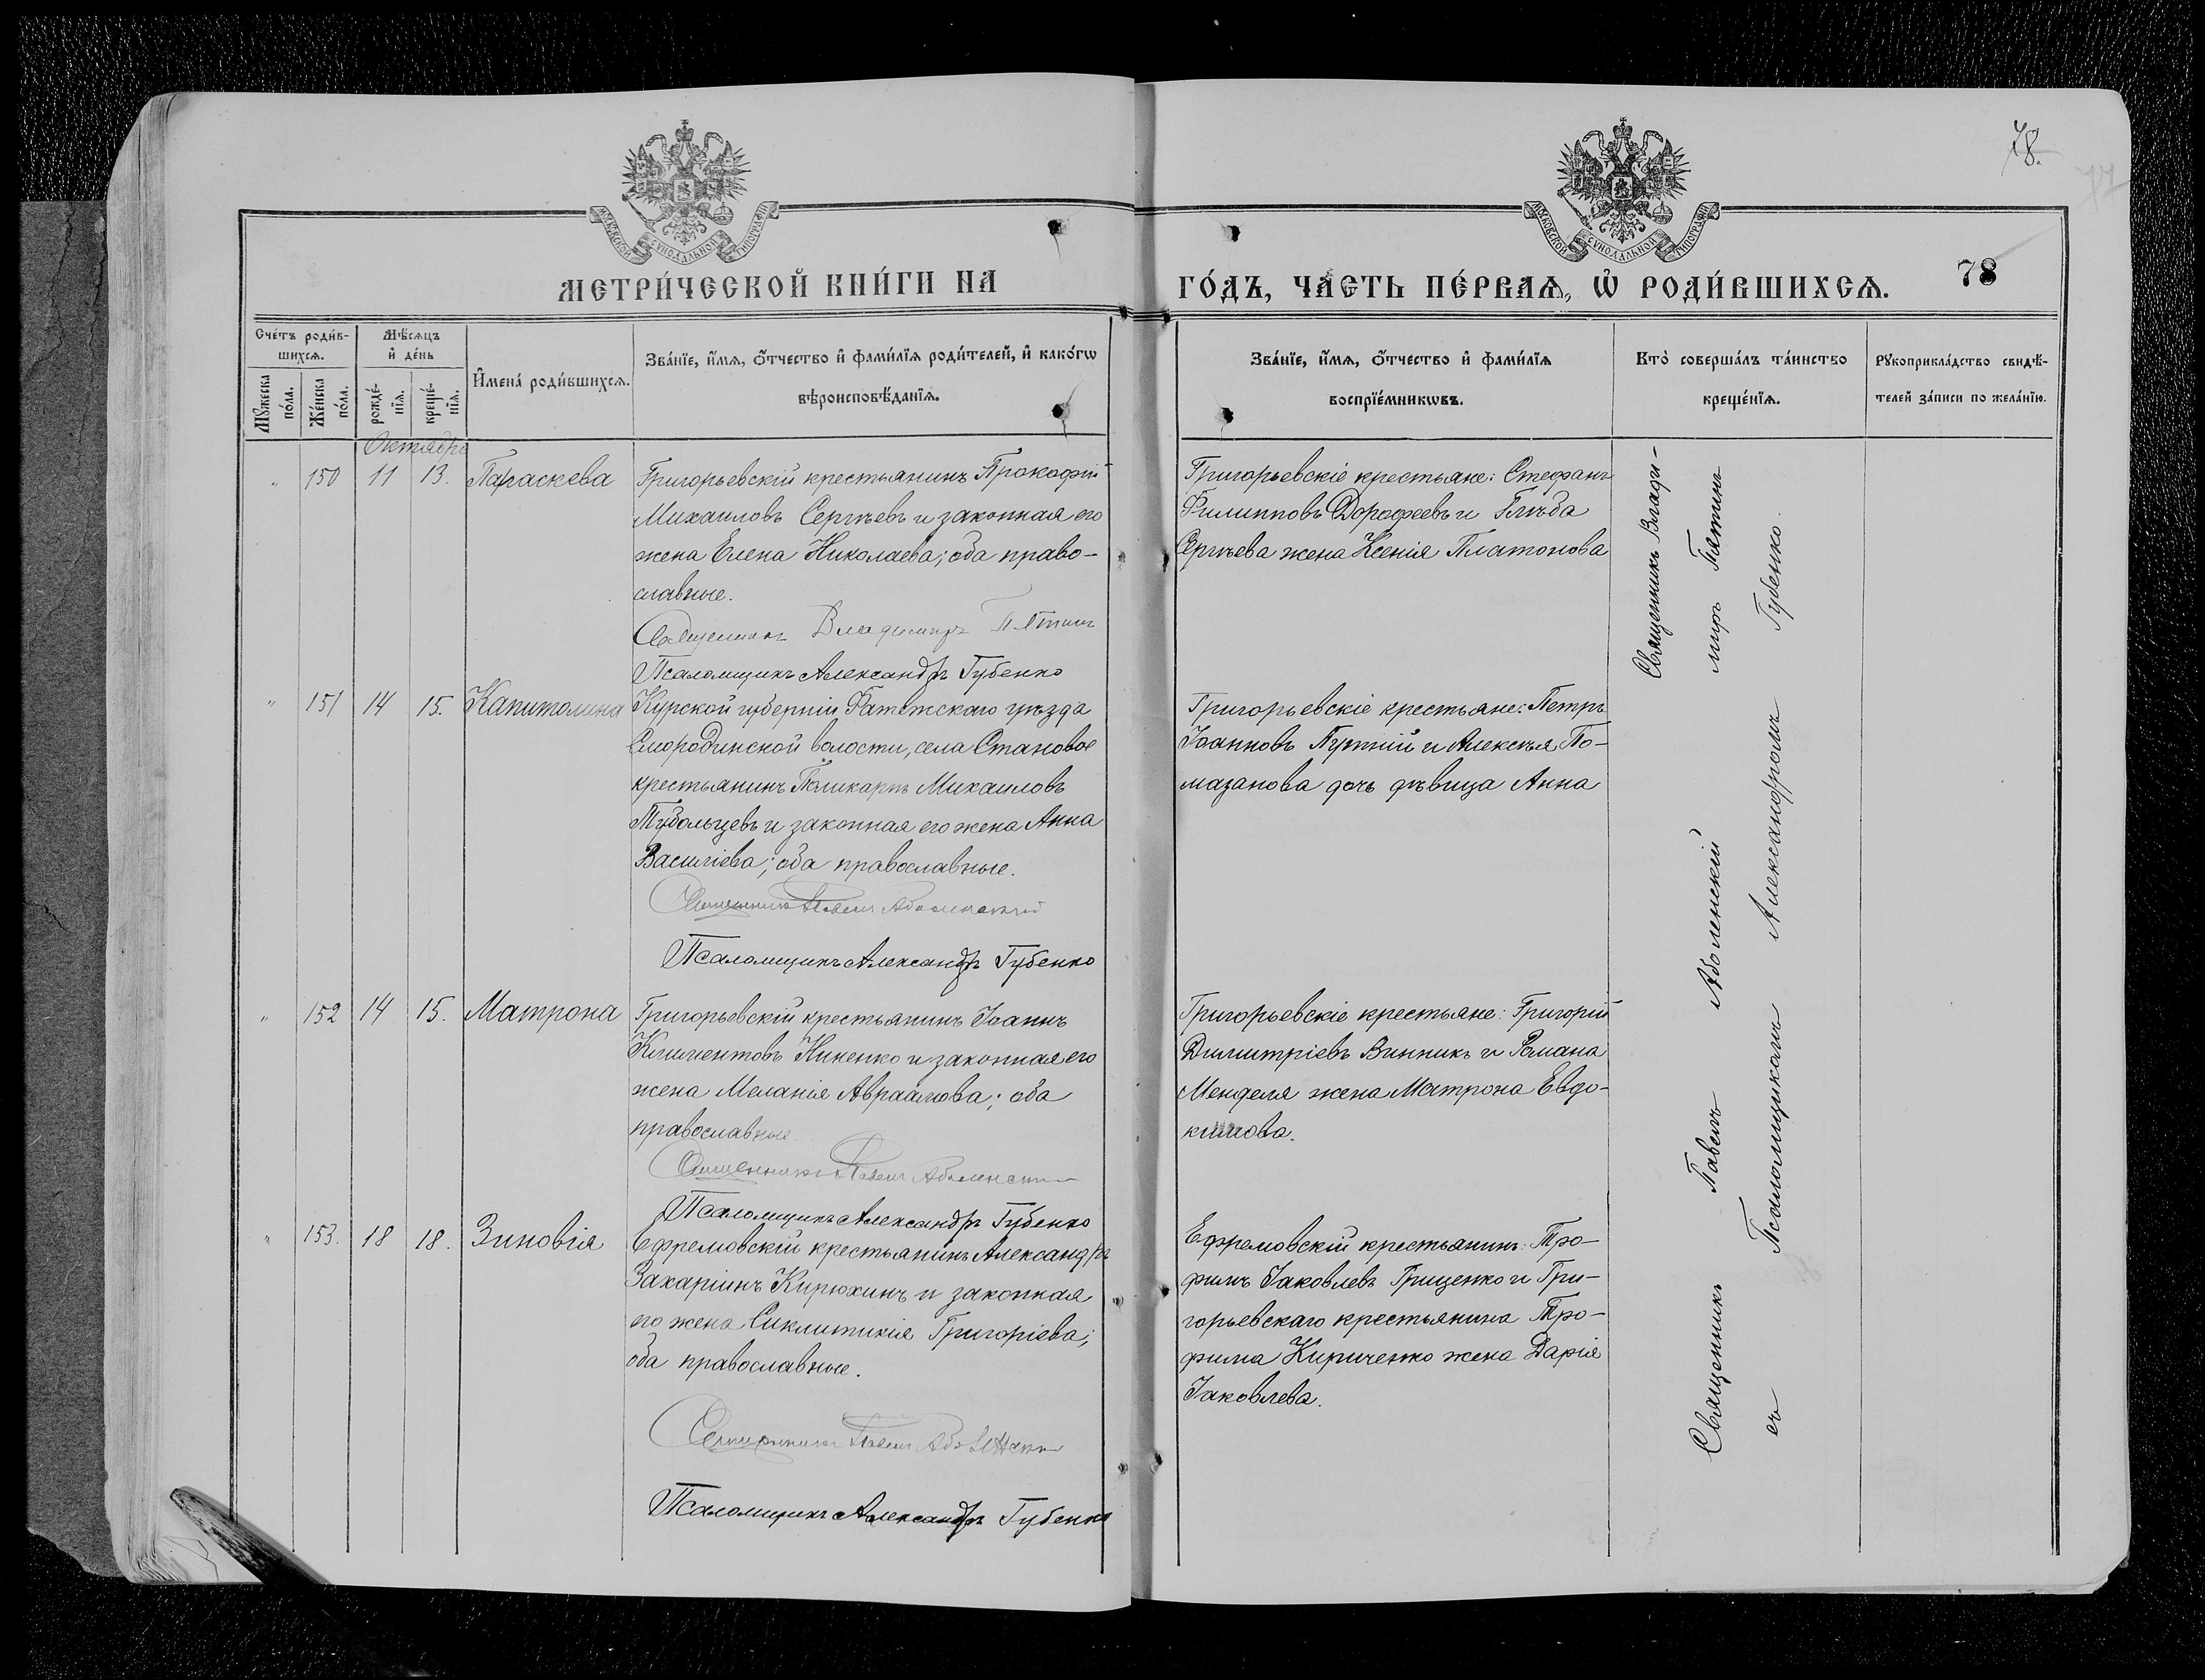 78.
77
МОСКОВСКОЙ СѴНОДАЛЬНОЙ ТИПОГРАФІИ
МОСКОВСКОЙ СѴНОДАЛЬНОЙ ТИПОГРАФІИ
МЕТРИ́ЧЕСКОЙ КНИ́ГИ НА ГО́ДЪ, ЧА́СТЬ ПЕ́РВАЯ, Ѡ҆ РОДИ́ВШИХСЯ. 78
Сче́тъ роди́в-
шихся.
Мꙋ́жеска
по́ла.
Же́нска
по́ла.
Мѣ́сяцъ
и҆ де́нь
рожде́-
нїѧ.
креще́-
нїѧ.
И҆мена̀ роди́вшихся.
Зва́нїе, и҆́мя, ѻ҆́тчество и҆ фами́лїя роди́телей, и҆ како́гѡ
вѣроисповѣ́данїя.
Зва́нїе, и҆́мя, ѻ҆́тчество и҆ фами́лїя
воспрїе́мникѡвъ.
Кто̀ соверша́лъ та́инство
креще́нїя.
Рꙋкоприкла́дство свидѣ́-
телей за́писи по жела́нїю.
Октября
" 150 11 13. Параскева
Григорьевскій крестьянинъ Прокофій
Михаиловъ Сергѣевъ и законная его
жена Елена Николаева; оба право-
славные.
Священникъ Владимиръ Пятинъ
Псаломщикъ Александръ Губенко
Григорьевскіе крестьяне: Стефанъ
Филипповъ Дорофеевъ и Глѣба
Сергѣева жена Ксенія Платонова
Священникъ Влади-
миръ Пятинъ
" 151 14 15. Капитолина
Курской губерніи Фатежскаго уѣзда
Смородинской волости, села Становое
крестьянинъ Поликарпъ Михаиловъ
Тубольцевъ и законная его жена Анна
Васигіева; оба православные.
Священникъ Павелъ Аболенскій
Псаломщикъ Александръ Губенко
Григорьевскіе крестьяне: Петръ
Іоанновъ Пугній и Алексѣя По-
мазанова дочь дѣвица Анна
" 152 14 15. Матрона
Григорьевскій крестьянинъ Іоаннъ
Климентовъ Киненко и законная его
жена Меланія Авраамова; оба
православные
Священникъ Павелъ Аболенскій
Псаломщикъ Александръ Губенко
Григорьевскіе крестьяне: Григорій
Димитріевъ Винникъ и Романа
Менделя жена Матрона Евдо-
кимова.
" 153. 18 18. Зиновія
Ефремовскій крестьянинъ Александръ
Захаріинъ Кирюхинъ и законная
его жена Сиклитикія Григоріева;
оба православные.
Священникъ Павелъ Аболенскій
Псаломщикъ Александръ Губенко
Ефремовскій крестьянинъ: Тро-
фимъ Іаковлевъ Гриценко и Гри-
горьевскаго крестьянина Тро-
фима Кириченко жена Дарія
Іаковлева.
Священникъ Павелъ Аболенскій
съ Псаломщикомъ Александромъ Губенко.